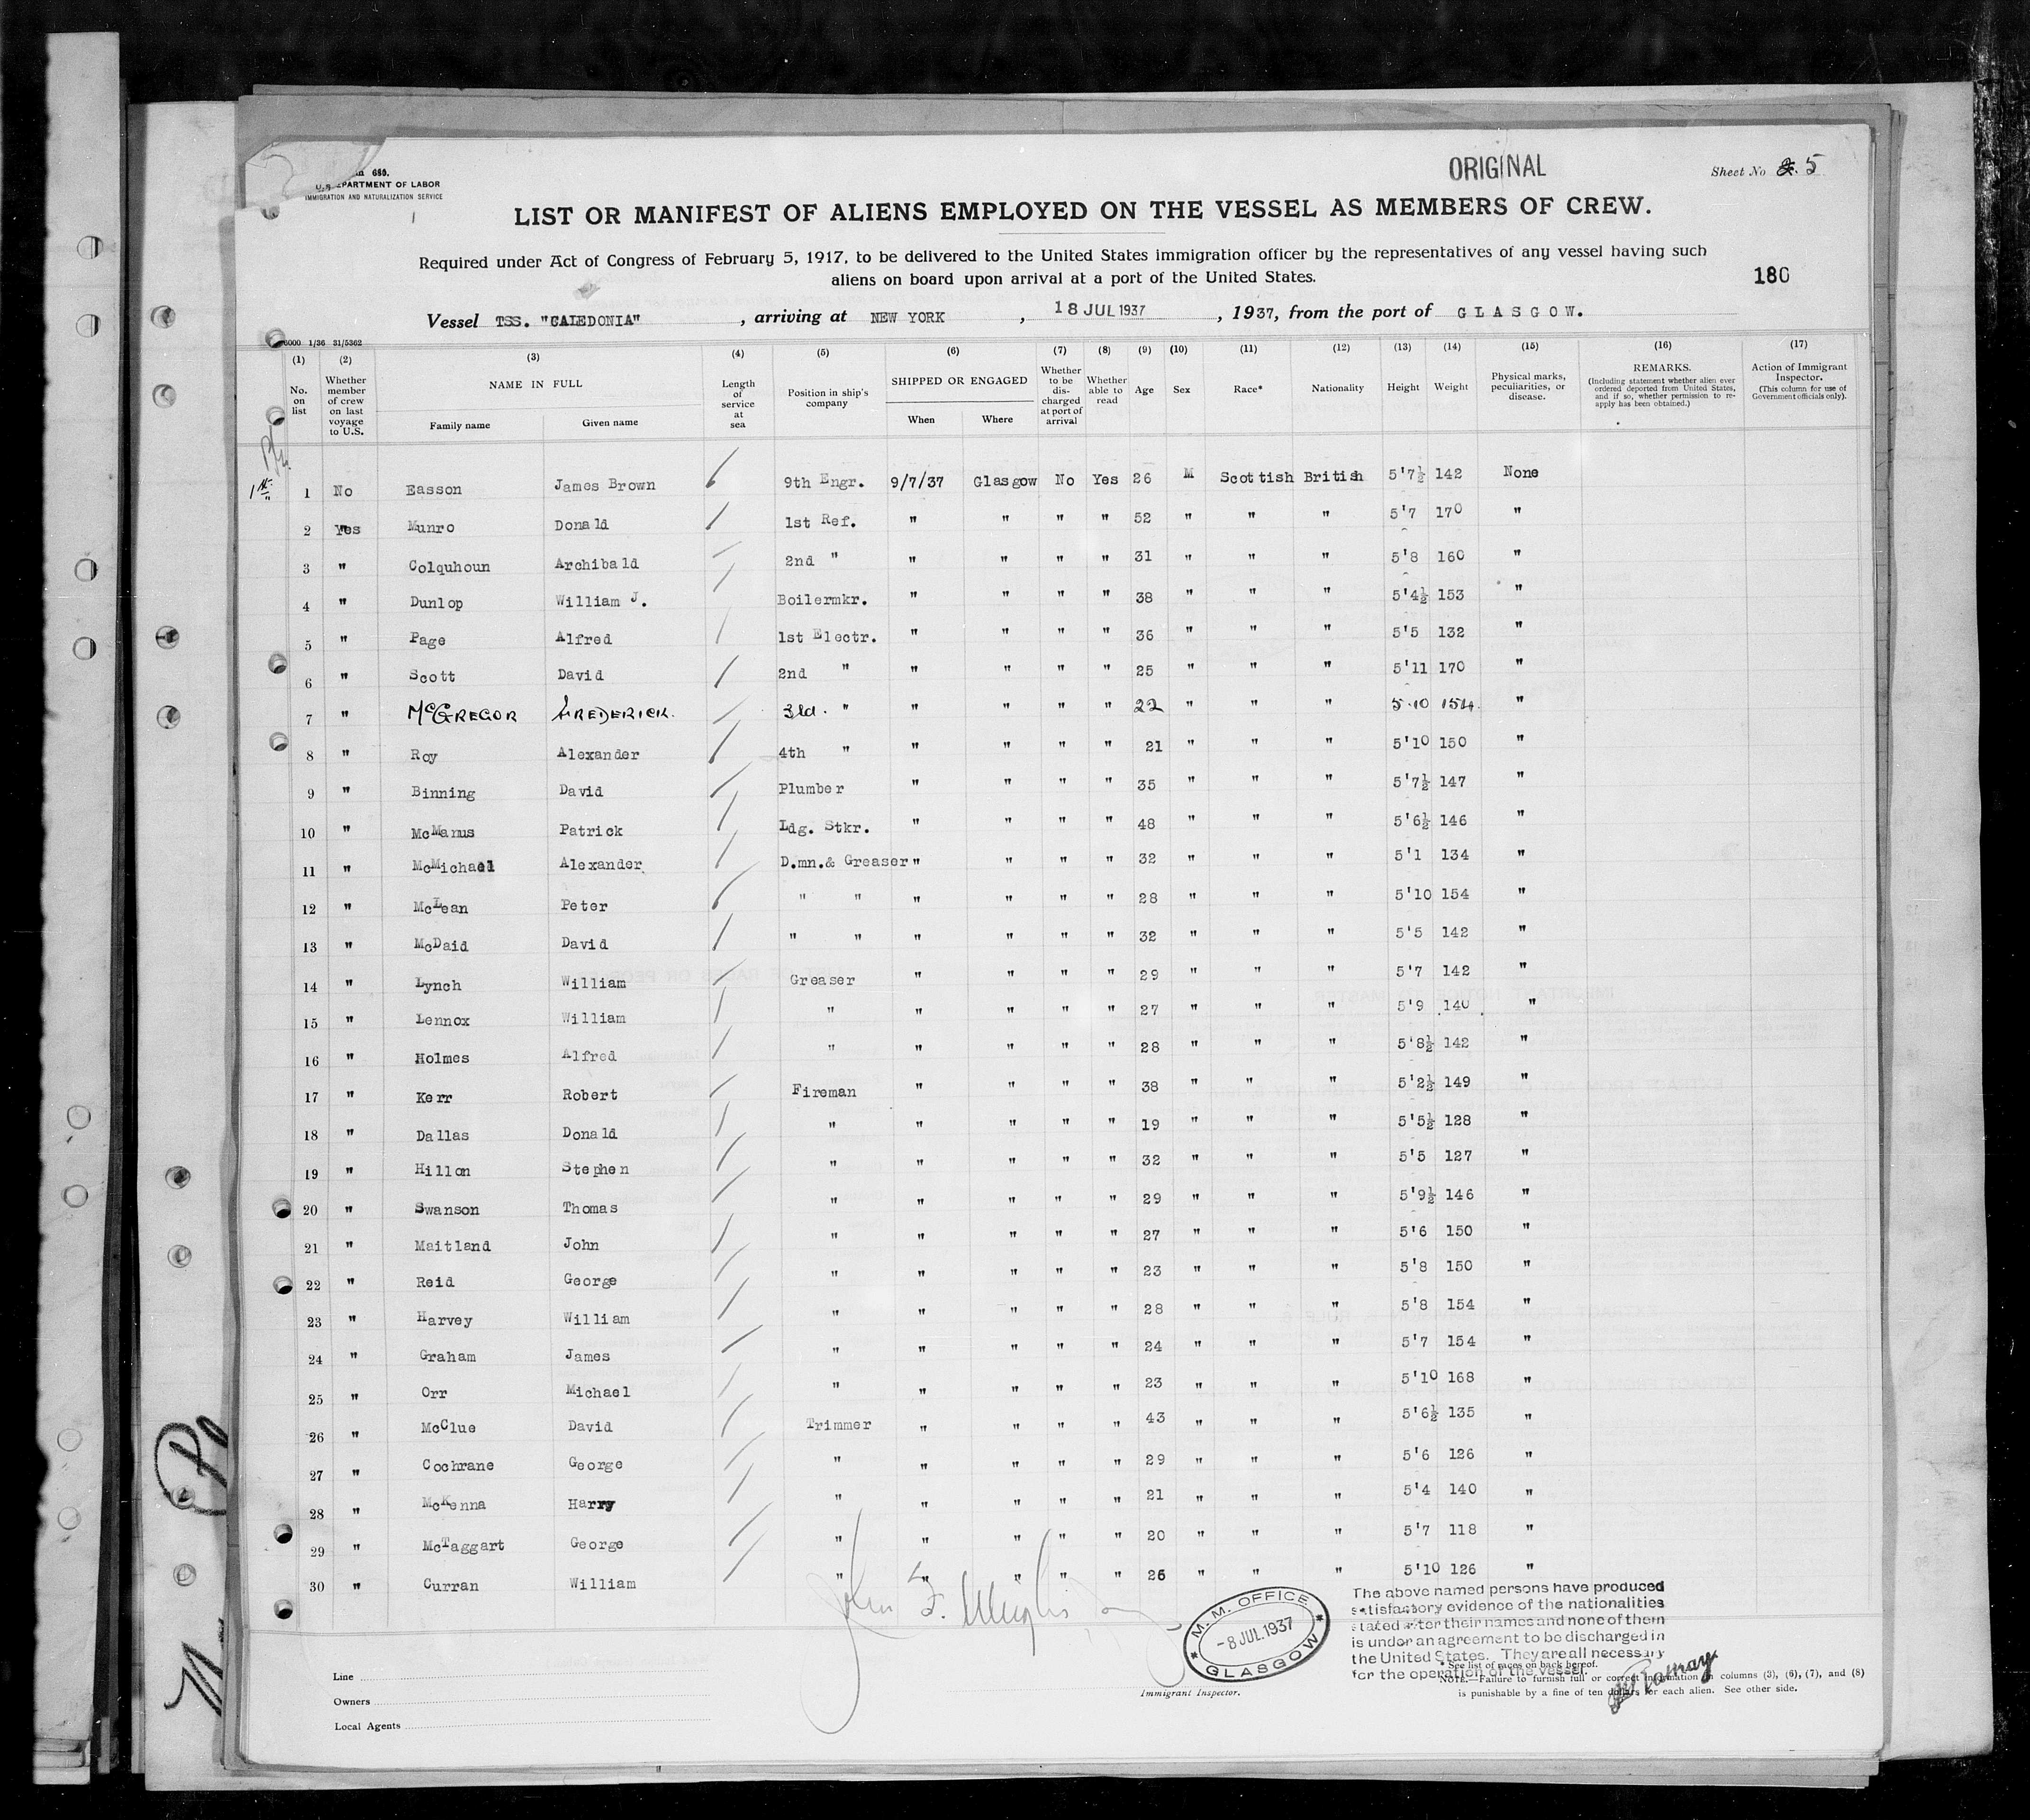 ORIGINAL
Sheet No 5
680.
U.S. DEPARTMENT OF LABOR
IMMIGRATION AND NATURALIZATION SERVICE
LIST OR MANIFEST OF ALIENS EMPLOYED ON THE VESSEL AS MEMBERS OF CREW.
Required under Act of Congress of February 5, 1917, to be delivered to the United States immigration officer by the representatives of any vessel having such
aliens on board upon arrival at a port of the United States.
180
Vessel TSS. "CALEDONIA" , arriving at NEW YORK , 18 JUL 1937 , 1937, from the port of GLASGOW.
6000 1/36 31/5362
(1) (2) (3) (4) (5) (6) (7) (8) (9) (10) (11) (12) (13) (14) (15) (16) (17)
No. on list
Whether member of crew on last voyage to U.S.
NAME IN FULL
Family name
Given name
Length of service at sea
Position in ship's company
SHIPPED OR ENGAGED
When
Where
Whether to be discharged at port of arrival
Whether able to read
Age
Sex
Race*
Nationality
Height
Weight
Physical marks, peculiarities, or disease.
REMARKS.
(Including statement whether alien ever ordered deported from United States, and if so, whether permission to re-apply has been obtained.)
Action of Immigrant Inspector.
(This column for use of Government officials only).
1st
1 No Easson James Brown 9th Engr. 9/7/37 Glasgow No Yes 26 M Scottish British 5'7½ 142 None
2 Yes Munro Donald 1st Ref. " " " " 52 " " " 5'7 170 "
3 " Colquhoun Archibald 2nd " " " " " 31 " " " 5'8 160 "
4 " Dunlop William J. Boilermkr. " " " " 38 " " " 5'4½ 153 "
5 " Page Alfred 1st Electr. " " " " 36 " " " 5'5 132 "
6 " Scott David 2nd " " " " " 25 " " " 5'11 170 "
7 " McGREGOR FREDERICK. 3rd. " " " " " 22 " " " 5.10 154. "
8 " Roy Alexander 4th " " " " " 21 " " " 5'10 150 "
9 " Binning David Plumber " " " " 35 " " " 5'7½ 147 "
10 " McManus Patrick Ldg. Stkr. " " " " 48 " " " 5'6½ 146 "
11 " McMichael Alexander D.mn.& Greaser " " " " 32 " " " 5'1 134 "
12 " McLean Peter " " " " " " 28 " " " 5'10 154 "
13 " McDaid David " " " " " " 32 " " " 5'5 142 "
14 " Lynch William Greaser " " " " 29 " " " 5'7 142 "
15 " Lennox William " " " " " 27 " " " 5'9 140 "
16 " Holmes Alfred " " " " " 28 " " " 5'8½ 142 "
17 " Kerr Robert Fireman " " " " 38 " " " 5'2½ 149 "
18 " Dallas Donald " " " " " 19 " " " 5'5½ 128 "
19 " Hillon Stephen " " " " " 32 " " " 5'5 127 "
20 " Swanson Thomas " " " " " 29 " " " 5'9½ 146 "
21 " Maitland John " " " " " 27 " " " 5'6 150 "
22 " Reid George " " " " " 23 " " " 5'8 150 "
23 " Harvey William " " " " " 28 " " " 5'8 154 "
24 " Graham James " " " " " 24 " " " 5'7 154 "
25 " Orr Michael " " " " " 23 " " " 5'10 168 "
26 " McClue David Trimmer " " " " 43 " " " 5'6½ 135 "
27 " Cochrane George " " " " " 29 " " " 5'6 126 "
28 " McKenna Harry " " " " " 21 " " " 5'4 140 "
29 " McTaggart George " " " " " 20 " " " 5'7 118 "
30 " Curran William " " " " " 26 " " " 5'10 126 "
M. M. OFFICE
-8 JUL.1937
GLASGOW
The above named persons have produced
satisfactory evidence of the nationalities
stated after their names and none of them
is under an agreement to be discharged in
the United States. They are all necessary
for the operation of the vessel.
Line
Owners
Local Agents
Immigrant Inspector.
* See list of races on back hereof.
NOTE.—Failure to furnish full or correct information in columns (3), (6), (7), and (8)
is punishable by a fine of ten dollars for each alien. See other side.